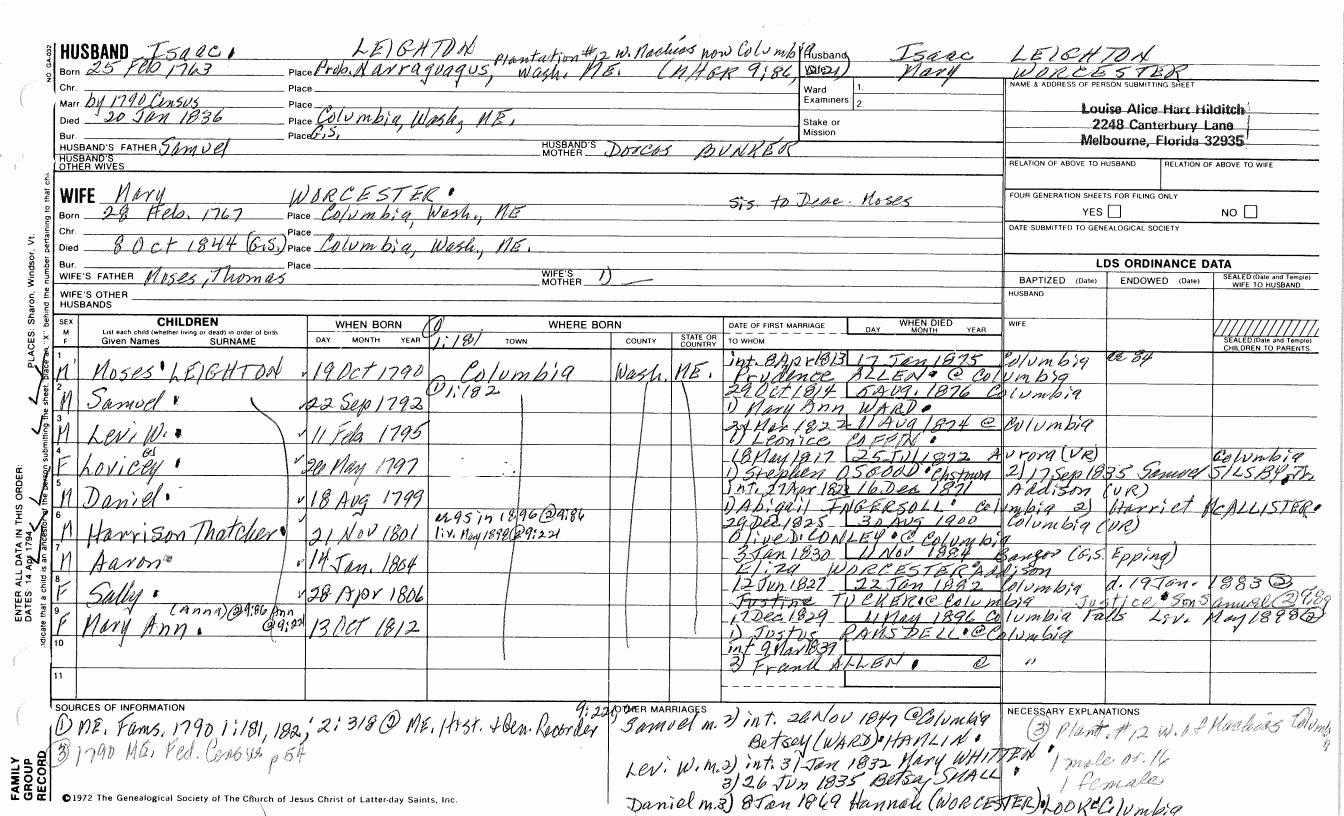 NO. GA-032
HUSBAND Isaac LEIGHTON Plantation #12 W. Machias now Columbia
Born 25 Feb 1763 Place Prob. Narraguagus, Wash. ME. (MHGR 9:86,
Chr. Place
Marr. by 1790 Census Place
Died 20 Jan 1836 Place Columbia, Wash, ME.
Bur. Place G.S.
HUSBAND'S FATHER Samuel HUSBAND'S MOTHER Dorcas BUNKER
HUSBAND'S OTHER WIVES
Husband Isaac LEIGHTON
Wife Mary WORCESTER
Ward 1.
Examiners 2.
Stake or Mission
NAME & ADDRESS OF PERSON SUBMITTING SHEET
Louise Alice Hart Hilditch
2248 Canterbury Lane
Melbourne, Florida 32935
RELATION OF ABOVE TO HUSBAND RELATION OF ABOVE TO WIFE
FOUR GENERATION SHEETS FOR FILING ONLY
YES NO
DATE SUBMITTED TO GENEALOGICAL SOCIETY
WIFE Mary WORCESTER Sis. to Deac. Moses
Born 28 Feb. 1767 Place Columbia, Wash., ME
Chr. Place
Died 8 Oct 1844 (G.S.) Place Columbia, Wash, ME.
Bur. Place
WIFE'S FATHER Moses, Thomas WIFE'S MOTHER 1)
WIFE'S OTHER HUSBANDS
LDS ORDINANCE DATA
BAPTIZED (Date) ENDOWED (Date) SEALED (Date and Temple) WIFE TO HUSBAND
HUSBAND
WIFE
SEALED (Date and Temple) CHILDREN TO PARENTS
SEX M F
CHILDREN
List each child (whether living or dead) in order of birth
Given Names SURNAME
WHEN BORN
DAY MONTH YEAR
① 1:181
WHERE BORN
TOWN COUNTY STATE OR COUNTRY
DATE OF FIRST MARRIAGE
TO WHOM
WHEN DIED
DAY MONTH YEAR
1 M Moses LEIGHTON 19 Oct 1790 Columbia Wash. ME. int. 8 Apr 1813 17 Jan 1875 Columbia ae 84
Prudence ALLEN @ Columbia
2 M Samuel 22 Sep 1792 ① 1:182 29 Oct 1814 5 Aug. 1876 Columbia
1) Mary Ann WARD
3 M Levi W. 11 Feb 1795 1822 11 Aug 1874 @ Columbia
1) Leonice COFFIN
4 F Lovicey 20 May 1797 18 May 1817 25 Jul 1872 Aurora (VR) Columbia
1) Stephen OSGOOD 2) 17 Sep 1835 Samuel SILSBY, Jr.
5 M Daniel 18 Aug 1799 int. 27 Apr 16 Dec 1871 Addison (VR)
1) Abigail INGERSOLL Columbia 2) Harriet McALLISTER
6 M Harrison Thatcher 21 Nov 1801 ae 95 in 1896 @ 9:86 29 Dec 1825 30 Aug 1900 Columbia (VR)
liv. May 1898 @ 9:221 Olive D. CONLEY @ Columbia
7 M Aaron 14 Jan. 1804 3 Jan 1830 11 Nov 1884 Bangor (G.S. Epping)
Eliza WORCESTER Addison
8 F Sally 28 Apr 1806 12 Jun 1827 22 Jan 1892 Columbia d. 19 Jan. 1883 ②
Justine TUCKER @ Columbia Justice Son Samuel
9 F Mary Ann (Anna) @ 9:86 Ann @ 9:221 13 Oct 1812 1 Dec 1829 11 May 1896 Columbia Falls Liv. May 1898 ②
1) Justus RAMSDELL @ Columbia
10 int 9 Mar 1837
2) Frank ALLEN @ "
11
SOURCES OF INFORMATION
① ME. Fams. 1790 1:181, 182; 2:318 ② ME. Hist. & Gen. Recorder 9:22
③ 1790 ME. Fed. Census p 54
OTHER MARRIAGES
Samuel m. 2) int. 26 Nov 1847 @ Columbia
Betsey (WARD) HAMLIN
Levi W. m. 2) int. 31 Jan 1832 Mary WHITTEN
3) 26 Jun 1835 Betsey SMALL
Daniel m. 3) 8 Jan 1869 Hannah (WORCESTER) LOOK @ Columbia
NECESSARY EXPLANATIONS
③ Plant. #12 W. of Machias Columbia
1 male or. 16
1 female
©1972 The Genealogical Society of The Church of Jesus Christ of Latter-day Saints, Inc.
FAMILY GROUP RECORD
ENTER ALL DATA IN THIS ORDER:
DATES: 14 Apr 1794
PLACES: Sharon, Windsor, Vt.